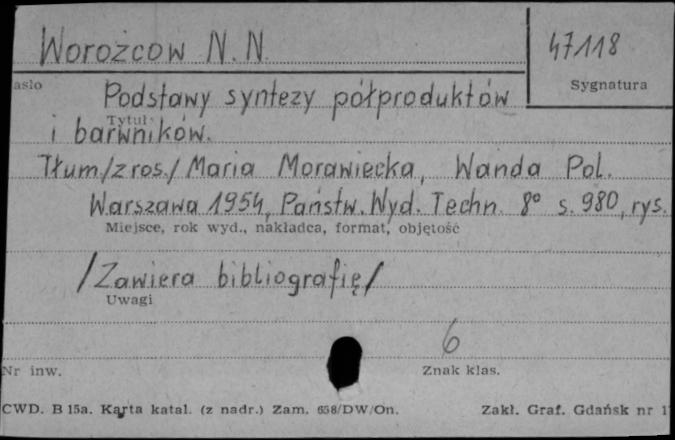 Worożcow N. N.
47118
asło
Sygnatura
Podstawy syntezy półproduktów
Tytuł
i barwników.
Tłum/z ros./ Maria Morawiecka, Wanda Pol.
Warszawa 1954, Państw. Wyd. Techn. 8° s. 980, rys.
Miejsce, rok wyd., nakładca, format, objętość
/Zawiera bibliografię/
Uwagi
6
Nr inw.
Znak klas.
CWD. B 15a. Karta katal. (z nadr.) Zam. 658/DW/On.
Zakł. Graf. Gdańsk nr 1